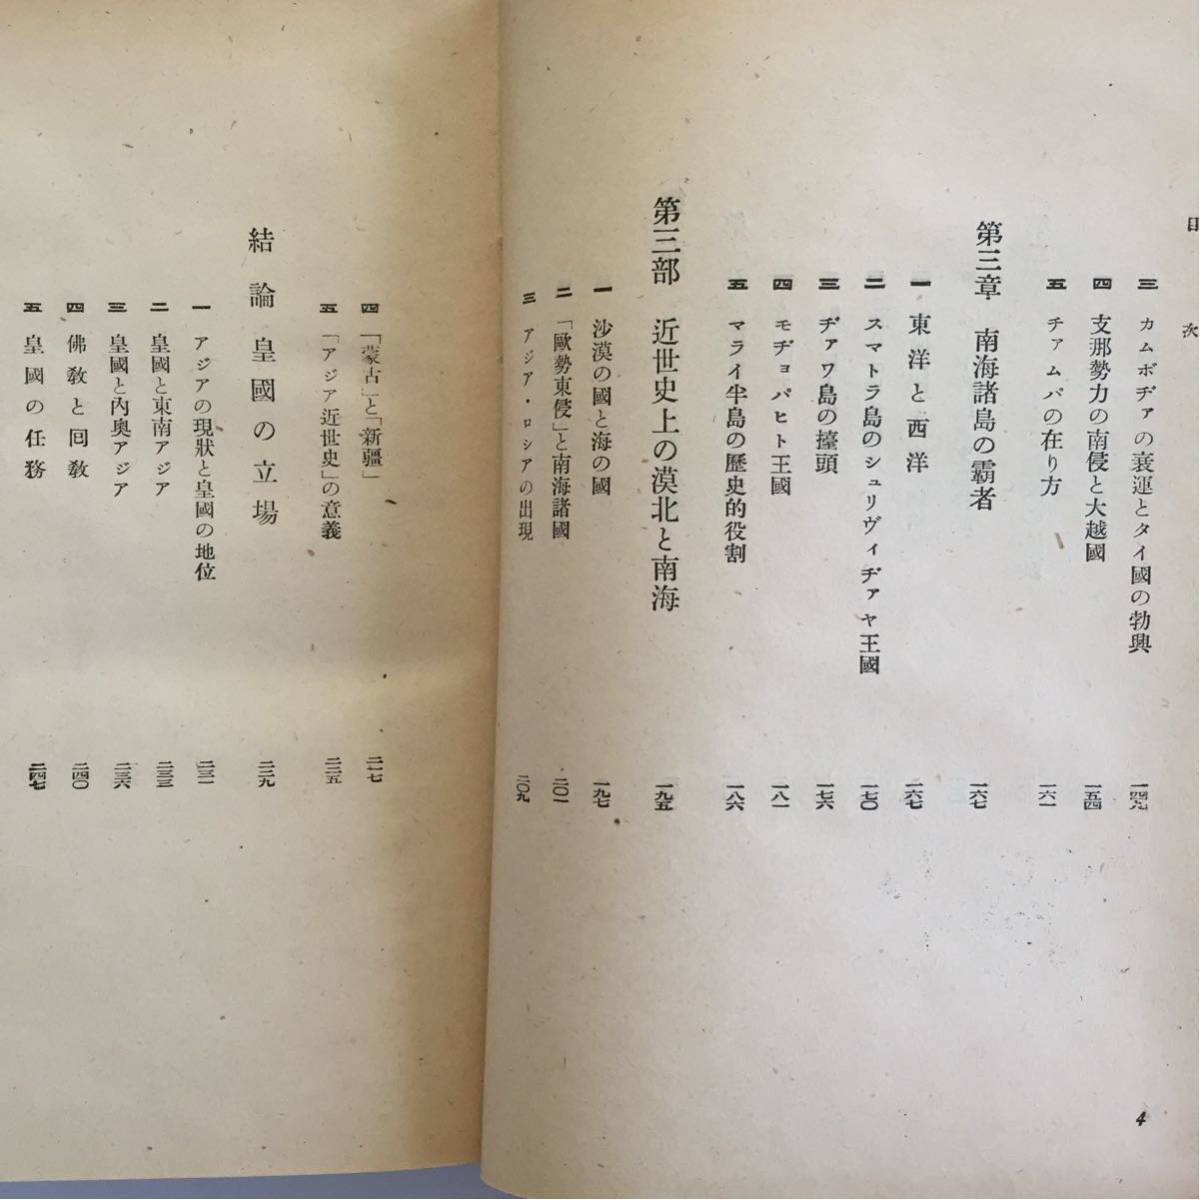 目次
三 カムボヂァの衰運とタイ國の勃興 一四九
四 支那勢力の南侵と大越國 一五四
五 チァムパの在り方 一六一
第三章 南海諸島の霸者 一六七
一 東洋と西洋 一六七
二 スマトラ島のシュリヴィヂァヤ王國 一七〇
三 ヂァワ島の擡頭 一七六
四 モヂョパヒト王國 一八一
五 マライ半島の歷史的役割 一八六
第三部 近世史上の漠北と南海 一九五
一 沙漠の國と海の國 一九七
二 「歐勢東侵」と南海諸國 二〇一
三 アジア・ロシアの出現 二〇九
4
四 「蒙古」と「新疆」 二一七
五 「アジア近世史」の意義 二二五
結論 皇國の立場 二二九
一 アジアの現狀と皇國の地位 二三一
二 皇國と東南アジア 二三三
三 皇國と內奧アジア 二三六
四 佛敎と回敎 二四〇
五 皇國の任務 二四七